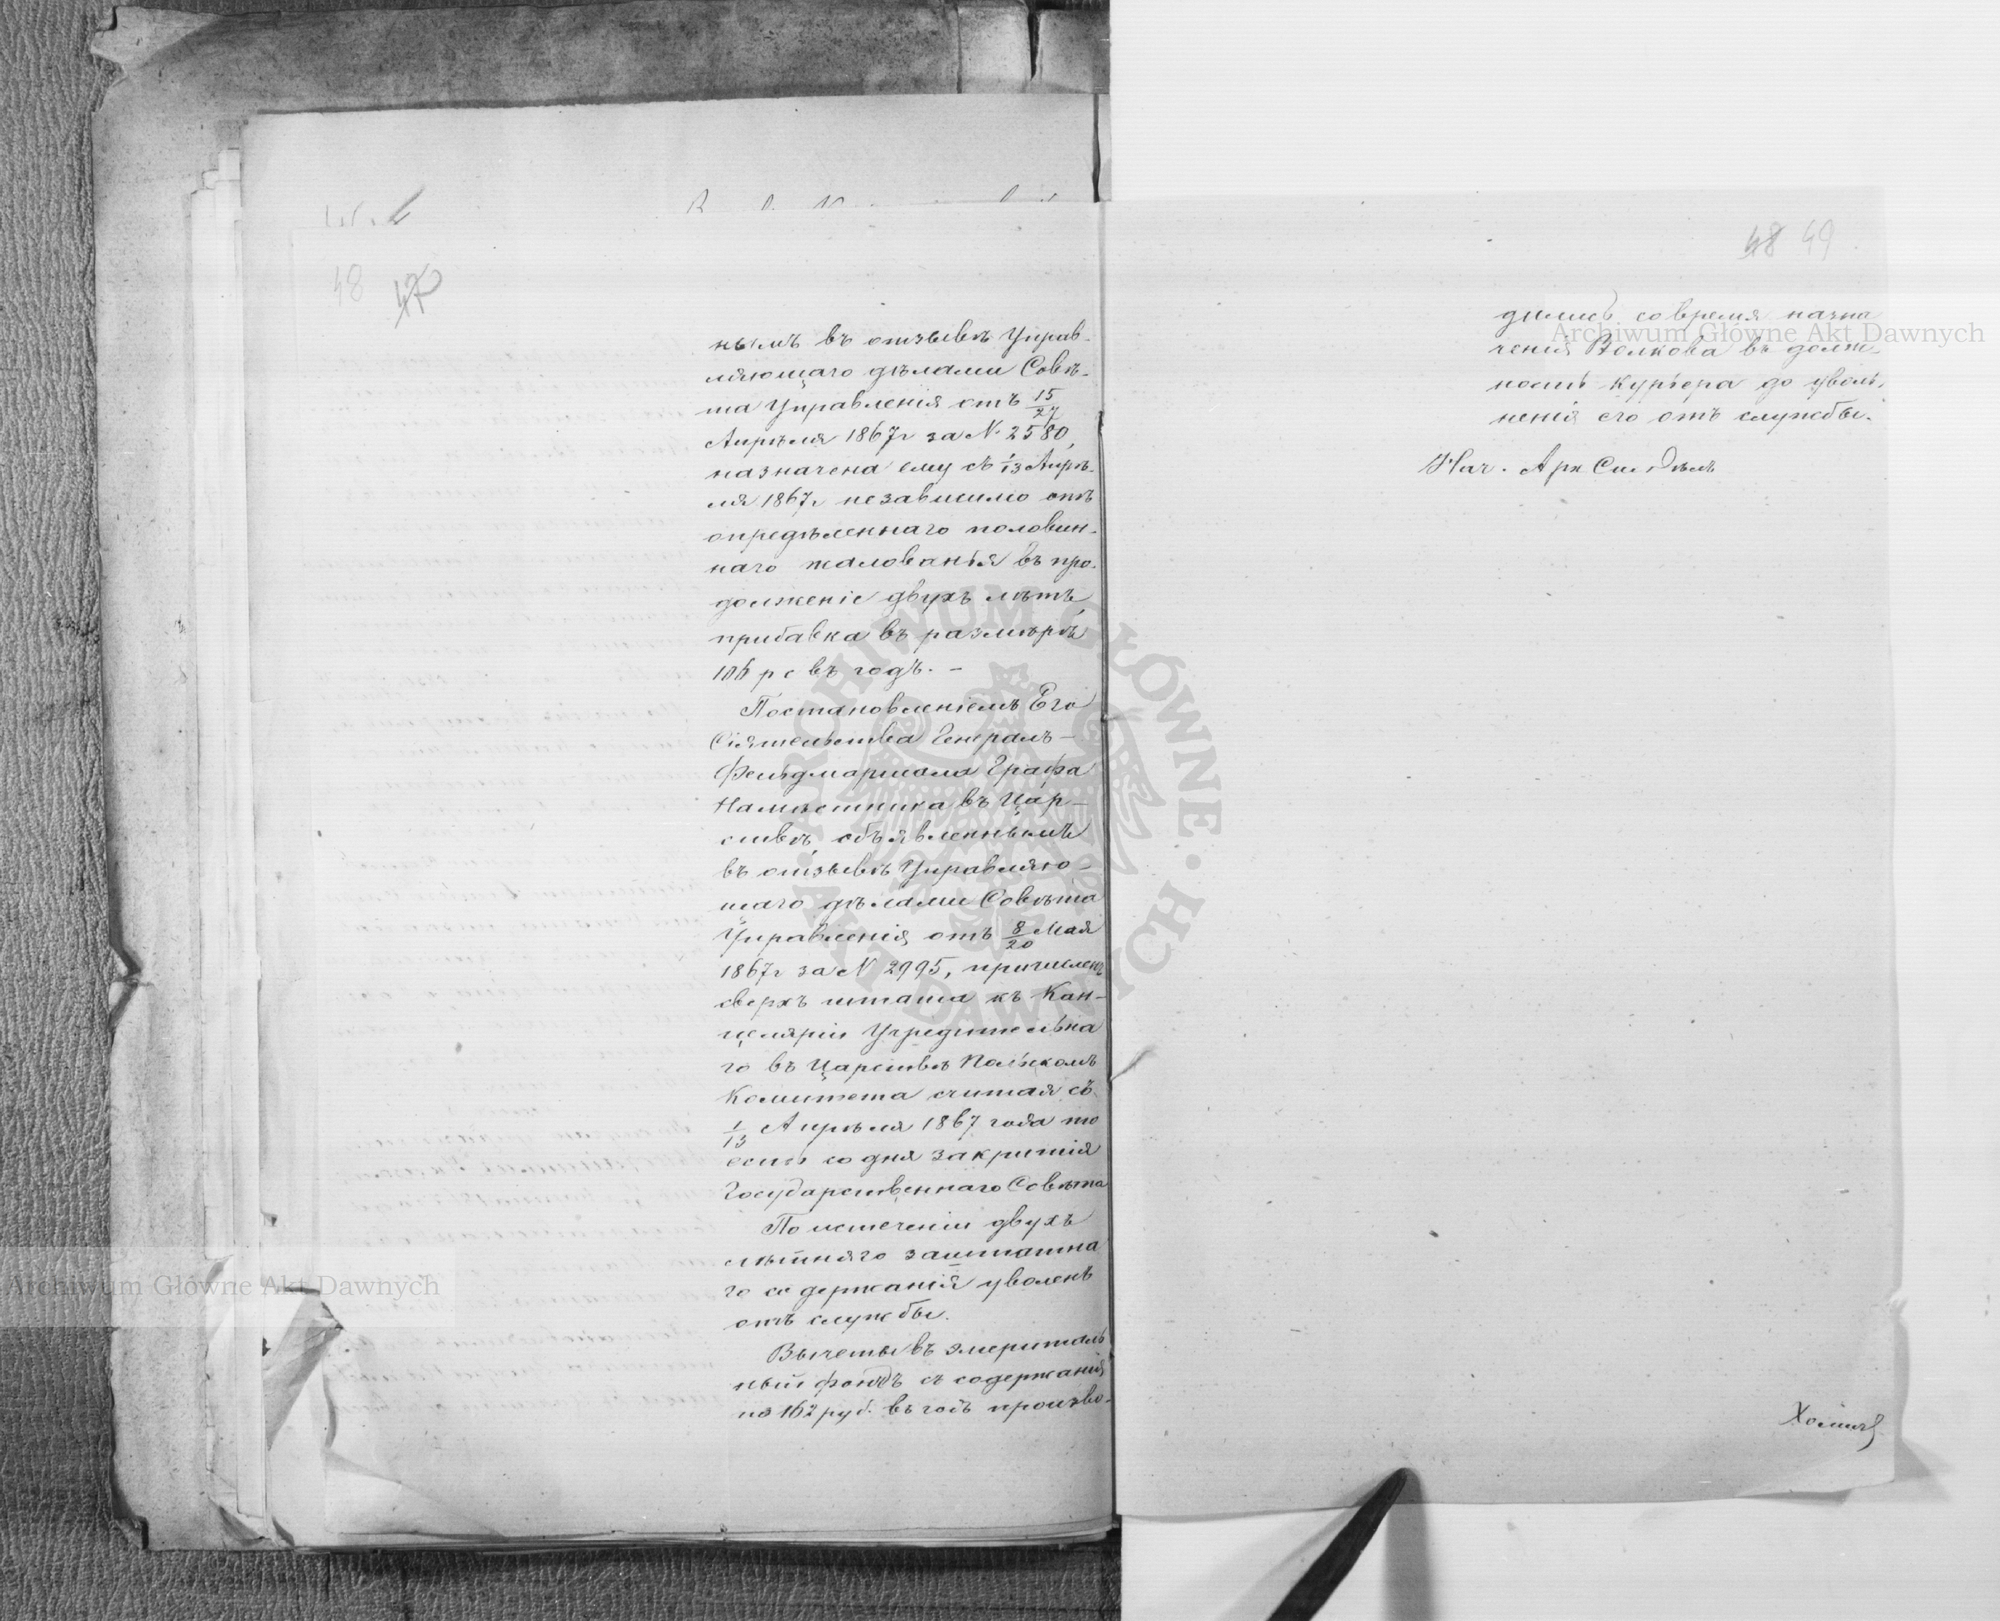 48 47
нымъ въ отзывѣ Управ-
ляющаго дѣлами Совѣ-
та Управленія отъ 15/27
Апрѣля 1867 г за № 2580,
назначена ему съ 1/13 Апрѣ-
ля 1867 г независимо отъ
опредѣленнаго половин-
наго жалованья въ про-
долженіе двухъ лѣтъ
прибавка въ размѣрѣ
р с въ годъ. –
Постановленіемъ Его
Сіятельства Генералъ –
Фельдмаршала Графа
Намѣстника въ Цар –
ствѣ, объявленнымъ
въ отзывѣ Управляю –
щаго дѣлами Совѣта
Управленія отъ 8/20 Мая
1867 г за № 2995, причисленъ
сверхъ штата къ Кан –
целяріи Учредительна
го въ Царствѣ Польскомъ
Комитета считая съ
1/13 Апрѣля 1867 года то
есть со дня закрытія
Государственнаго Совѣта
По истеченіи двухъ
лѣтняго заштатна
го содержанія уволенъ
отъ службы.
Вычеты въ эмериталь
ный фондъ съ содержанія
по 162 руб. въ годъ произво-
48 49
дились со время назна
ченія Волкова въ долж-
ность курьера до уволь-
ненія его отъ службы.
Нач. Арх
Archiwum Główne Akt Dawnych
Archiwum Główne Akt Dawnych
ARCHIWUM GŁÓWNE AKT DAWNYCH